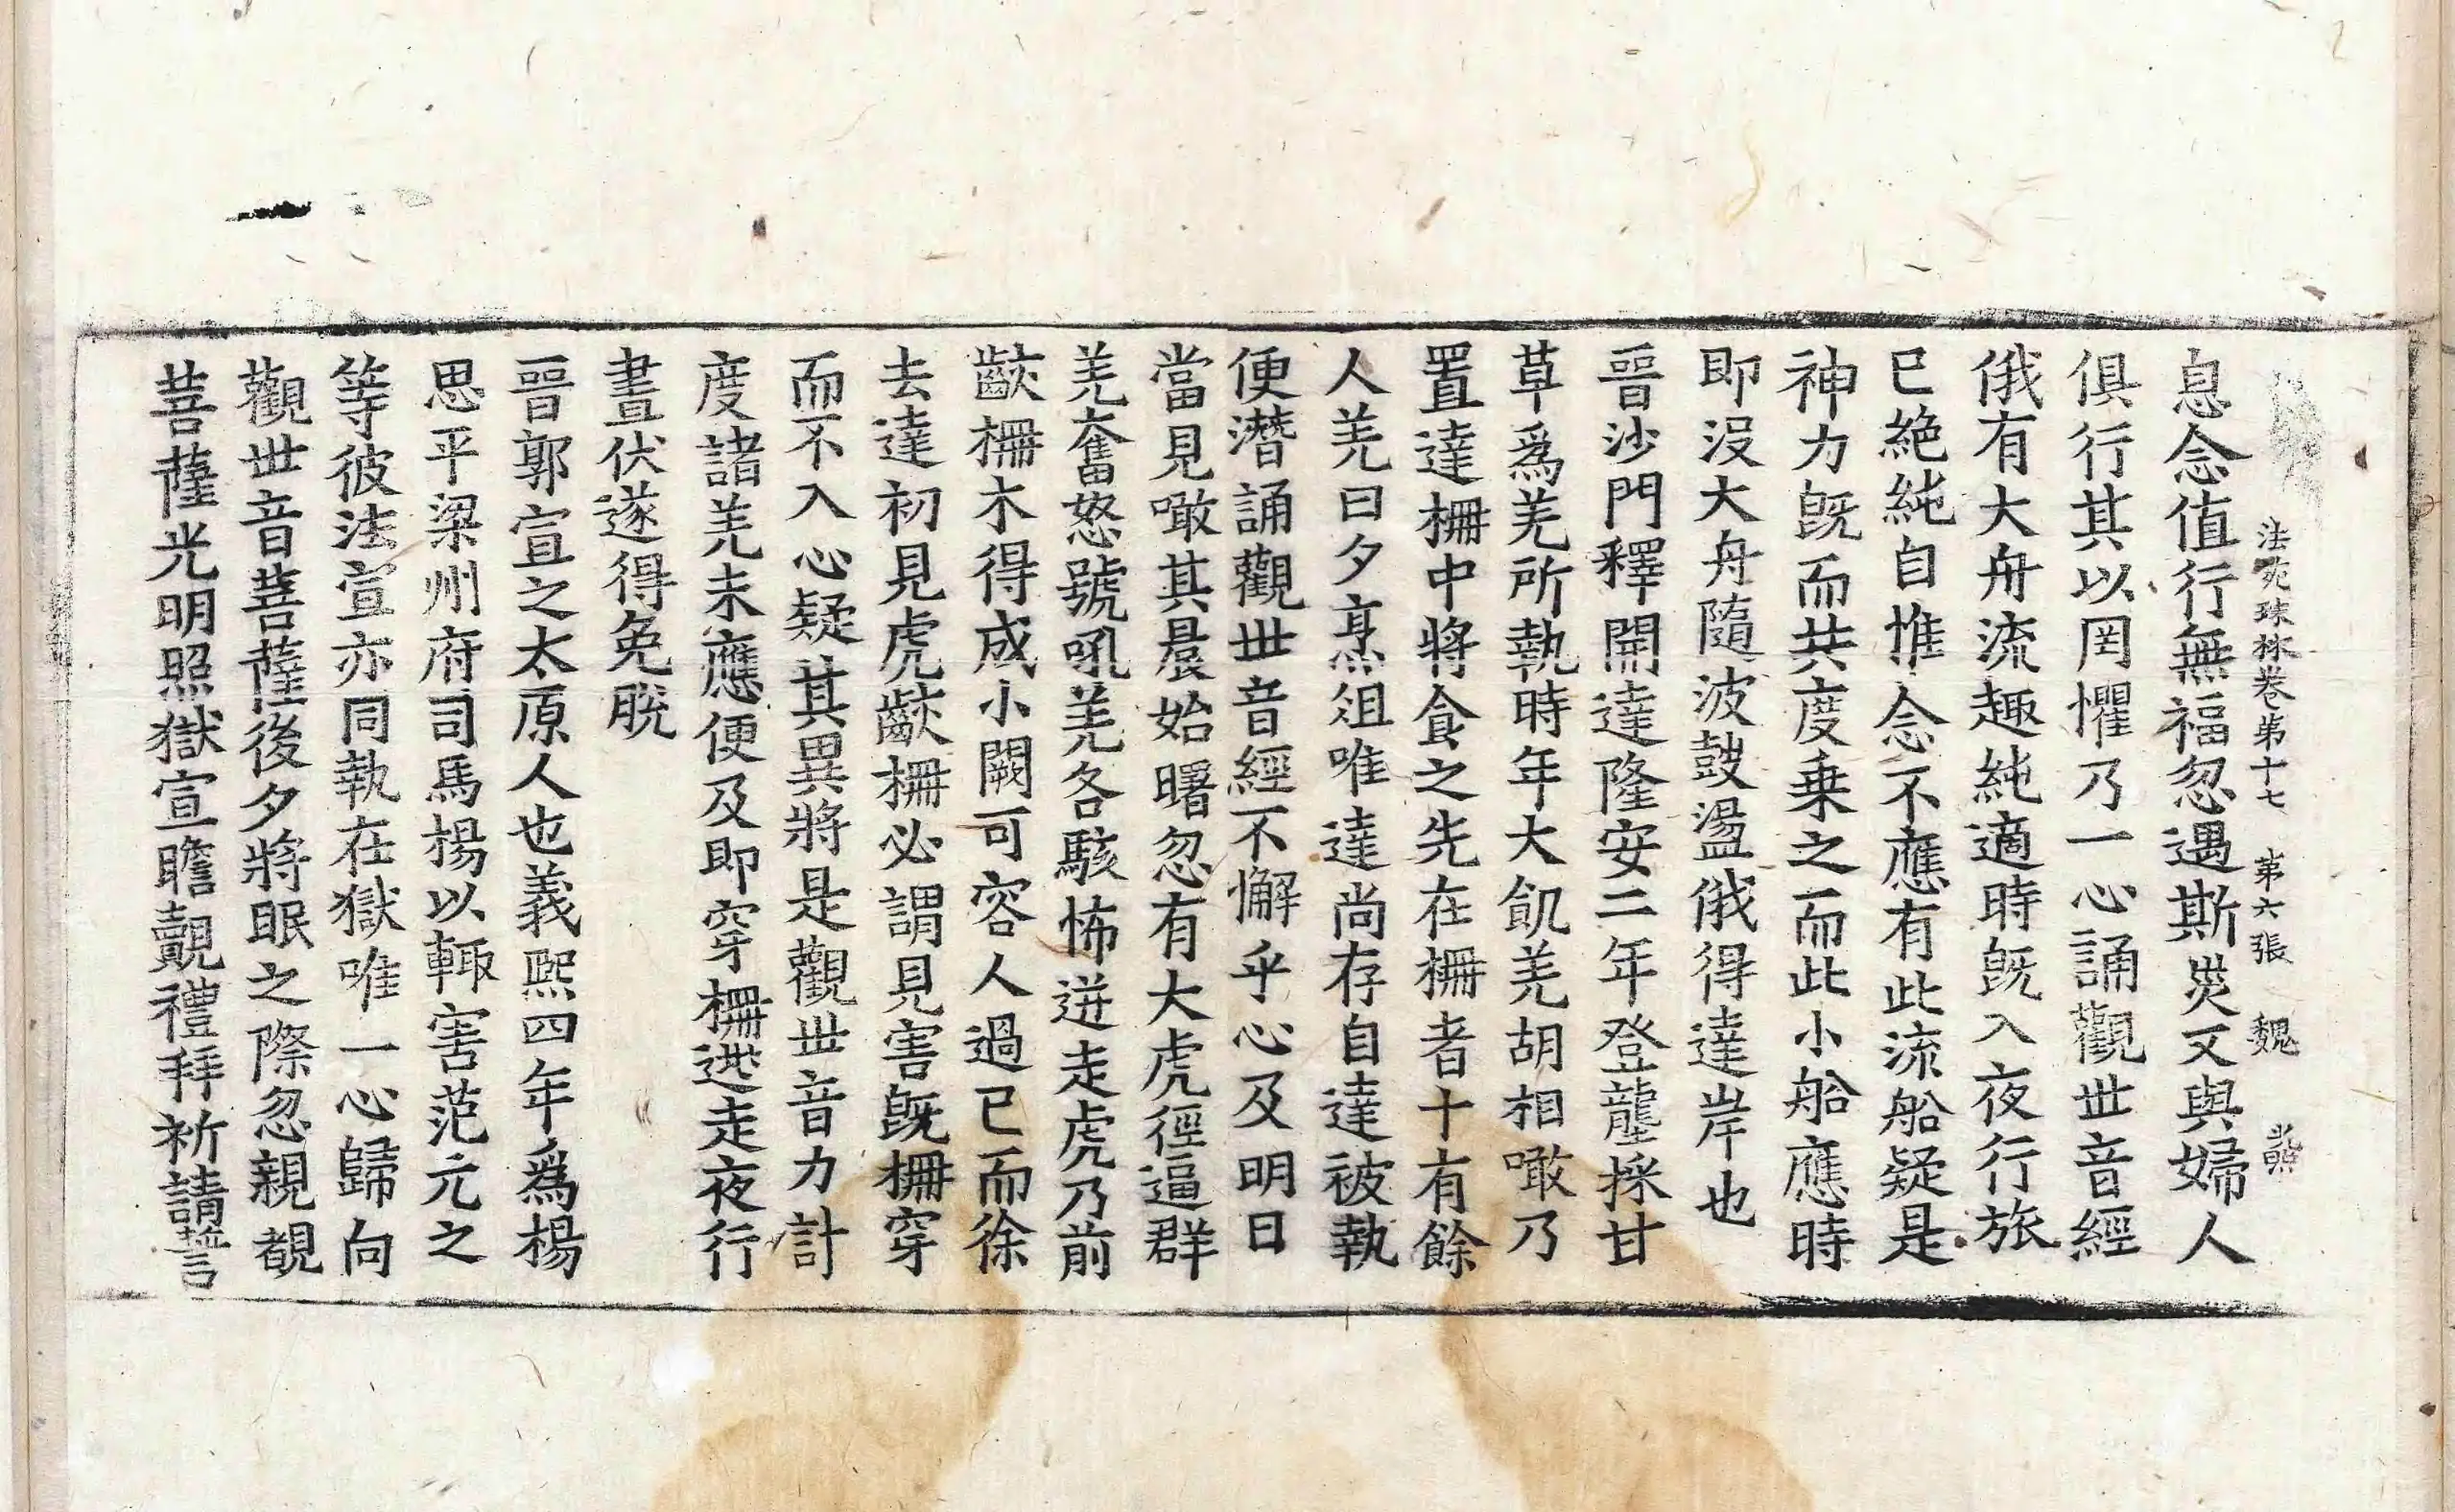 法苑珠林卷第十七 第六張 魏
息念值行無福忽遇斯災又與婦人
俱行其以罔懼乃一心誦觀世音經
俄有大舟流趣純適時旣入夜行旅
已絶純自惟念不應有此流船疑是
神力旣而共度乗之而此小船應時
即没大舟隨波皷盪俄得達岸也
晉沙門釋開達隆安二年登壟採甘
草爲羌所執時年大飢羌胡相噉乃
置達柵中將食之先在柵者十有餘
人羌日夕烹俎唯達尚存自達被執
便潛誦觀世音經不懈乎心及明日
當見噉其晨始曙忽有大虎徑逼群
羌奮怒號吼羌各駭怖迸走虎乃前
齩柵木得成小闕可容人過已而徐
去達初見虎齩柵必謂見害旣柵穿
而不入心疑其異將是觀世音力計
度諸羌未應便及即穿柵逃走夜行
晝伏遂得免脫
晉郭宣之太原人也義熙四年爲楊
思平梁州府司馬楊以輙害范元之
等彼法宣亦同執在獄唯一心歸向
觀世音菩薩後夕將眠之際忽親覩
菩薩光明照獄宣瞻覿禮拜祈請誓